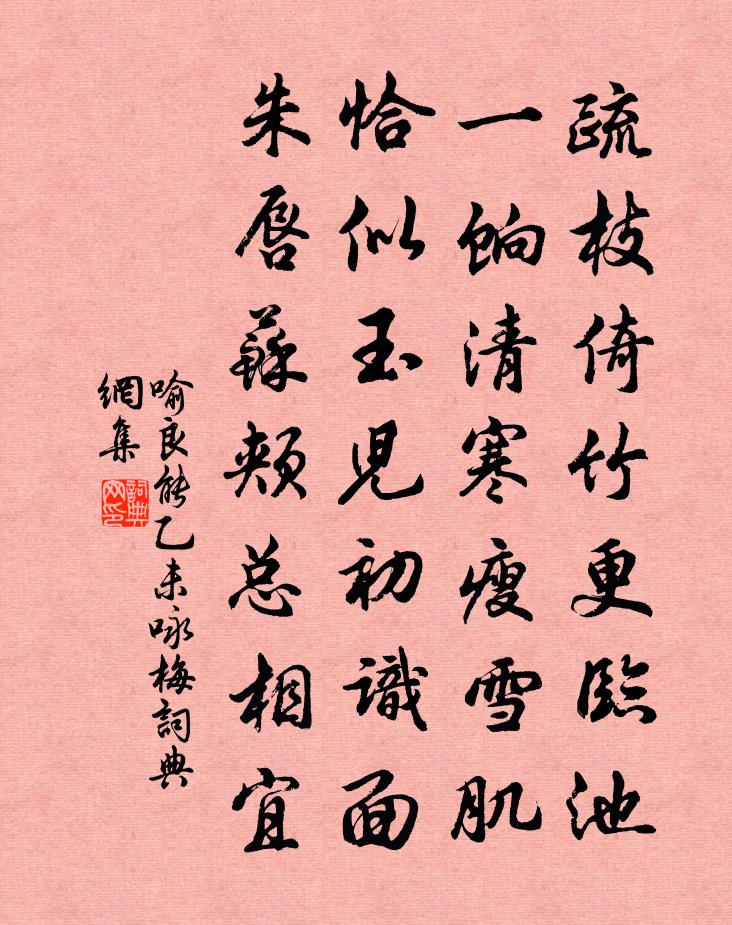 疏枝倚竹更臨池
一餉清寒瘦雪肌
恰似玉児初識面
朱唇蘇頰总相宜
喻良能乙未咏梅詞典
網集
詞典网印